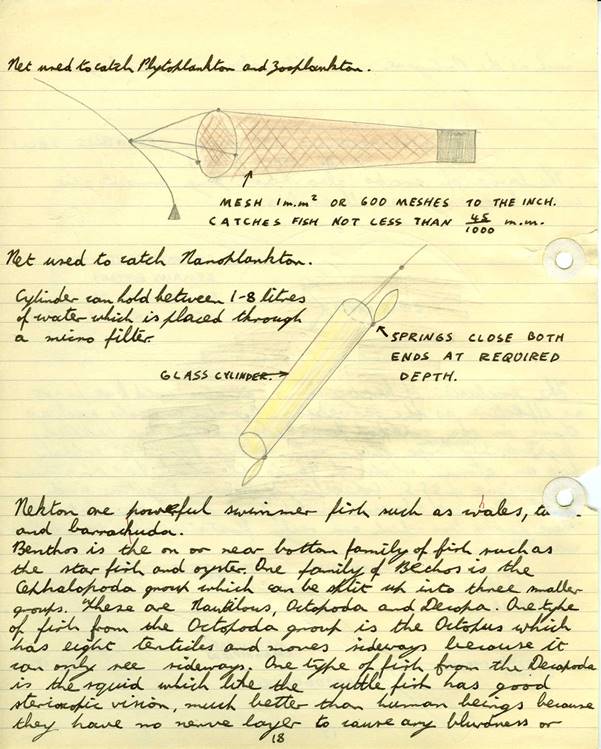 Net used to catch Phytoplankton and zooplankton.
MESH 1 m.m² OR 600 MESHES TO THE INCH.
CATCHES FISH NOT LESS THAN 45/1000 m.m.
Net used to catch Nanoplankton.
Cylinder can hold between 1-8 litres
of water which is placed through
a micro filter.
SPRINGS CLOSE BOTH
ENDS AT REQUIRED
DEPTH.
GLASS CYLINDER.
Nekton are powerful swimmer fish such as wales,
and barrachuda.
Benthos is the on or near bottom family of fish such as
the star fish and oyster. One family of is the
Cephalopoda group which can be split up into three smaller
groups. These are Nautilous, Octopoda and Decopa. One type
of fish from the Octopoda group is the Octopus which
has eight tenticles and moves sideways because it
can only see sideways. One type of fish from the Decapoda
is the squid which like the cuttle fish has good
vision, much better than human beings because
they have no nerve layer to cause any or
18